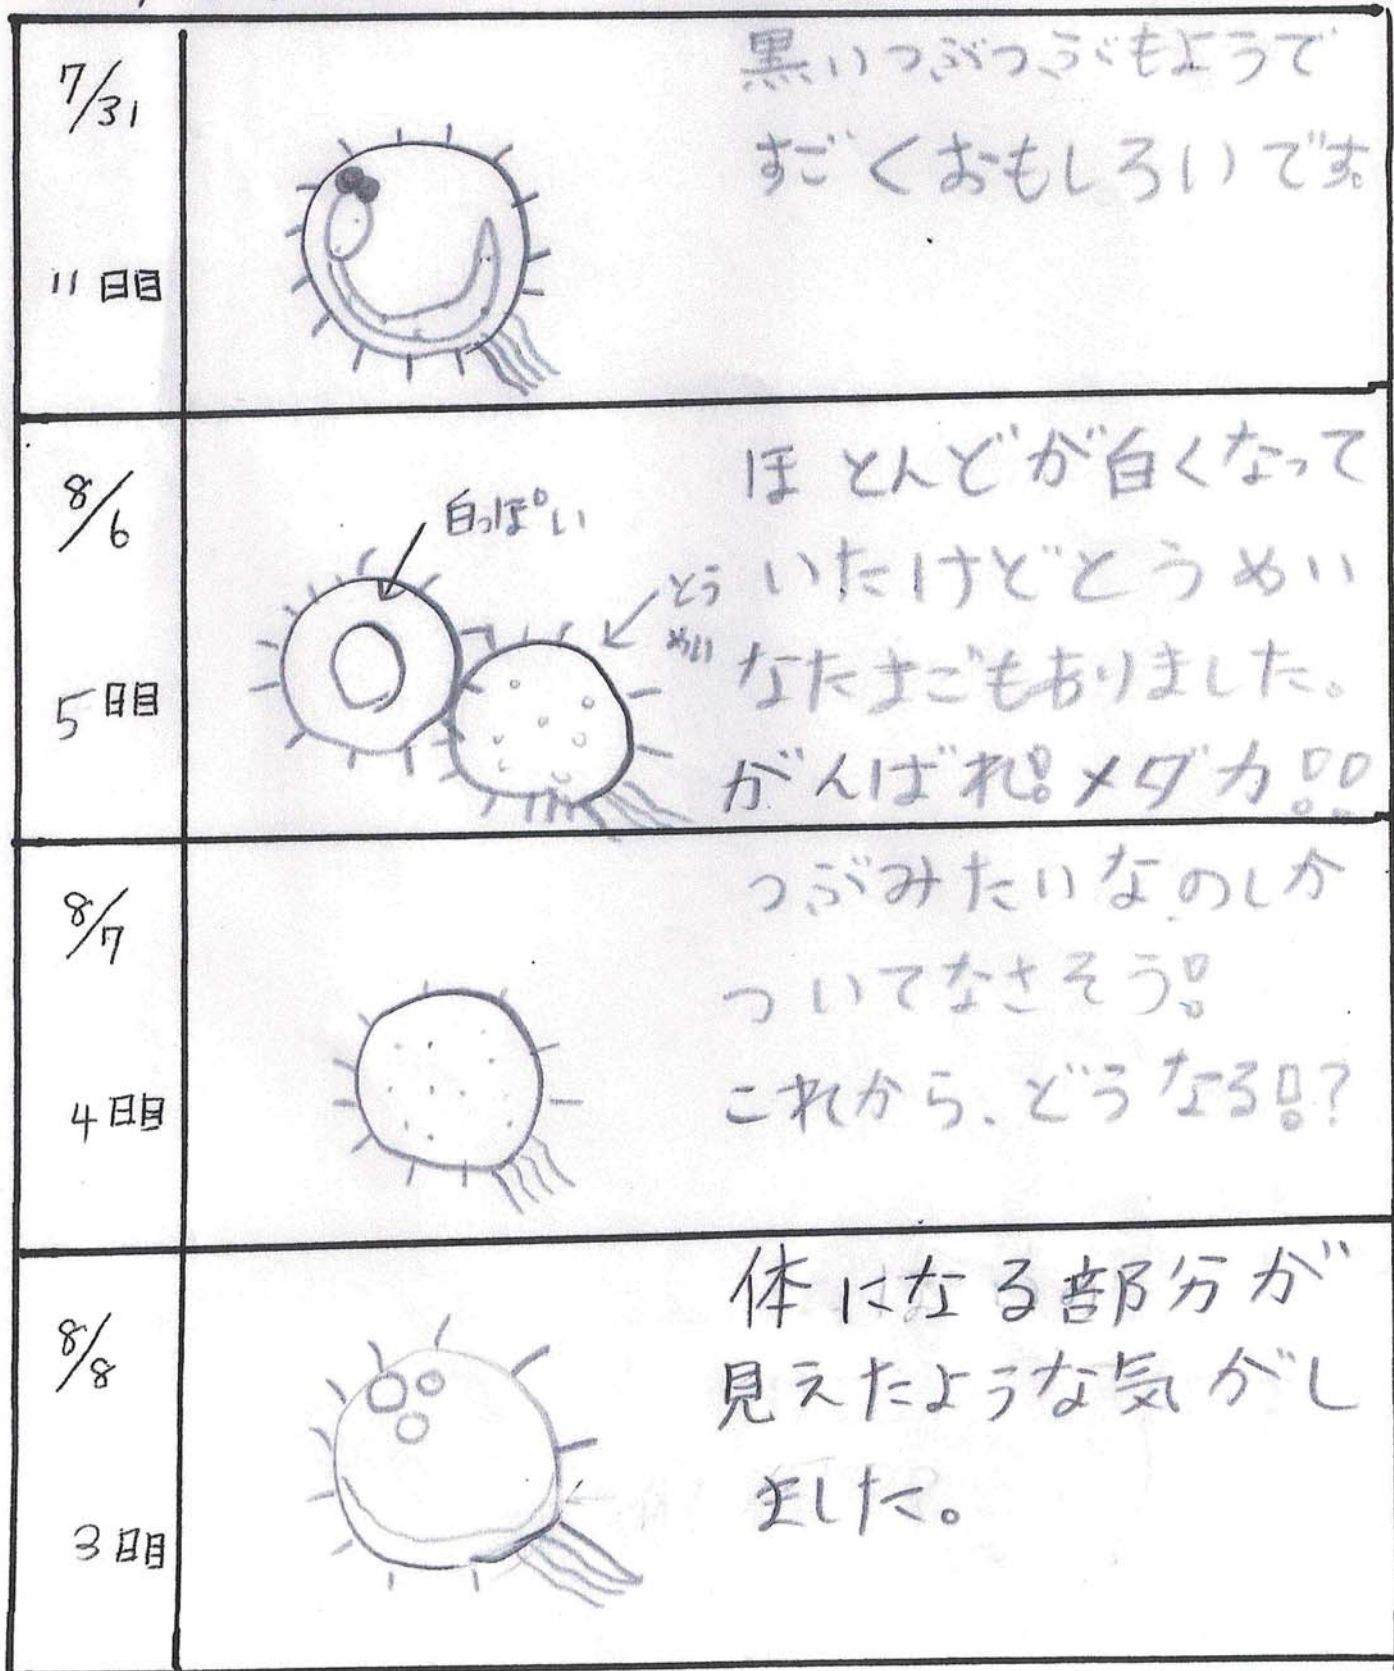 7/31
11日目
黒いつぶつぶもようで
すごくおもしろいです。
8/6
5日目
白っぽい
とう
めい
ほとんどが白くなって
いたけどとうめい
なたまごもありました。
がんばれ!メダカ!!
8/7
4日目
つぶみたいなのしか
ついてなさそう!
これから、どうなる!?
8/8
3日目
体になる部分が
見えたような気がし
ました。